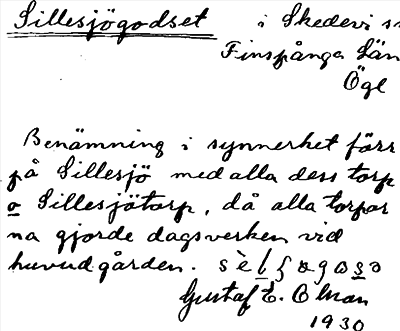 Sillesjögodset i Skedevi s
Finspånga Län
Ögl
Benämning i synnerhet förr
på Sillesjö med alla dess torp
o Sillesjötorp, då alla torpar
na gjorde dagsverken vid
huvudgården.
Gustaf E. Olman
1930